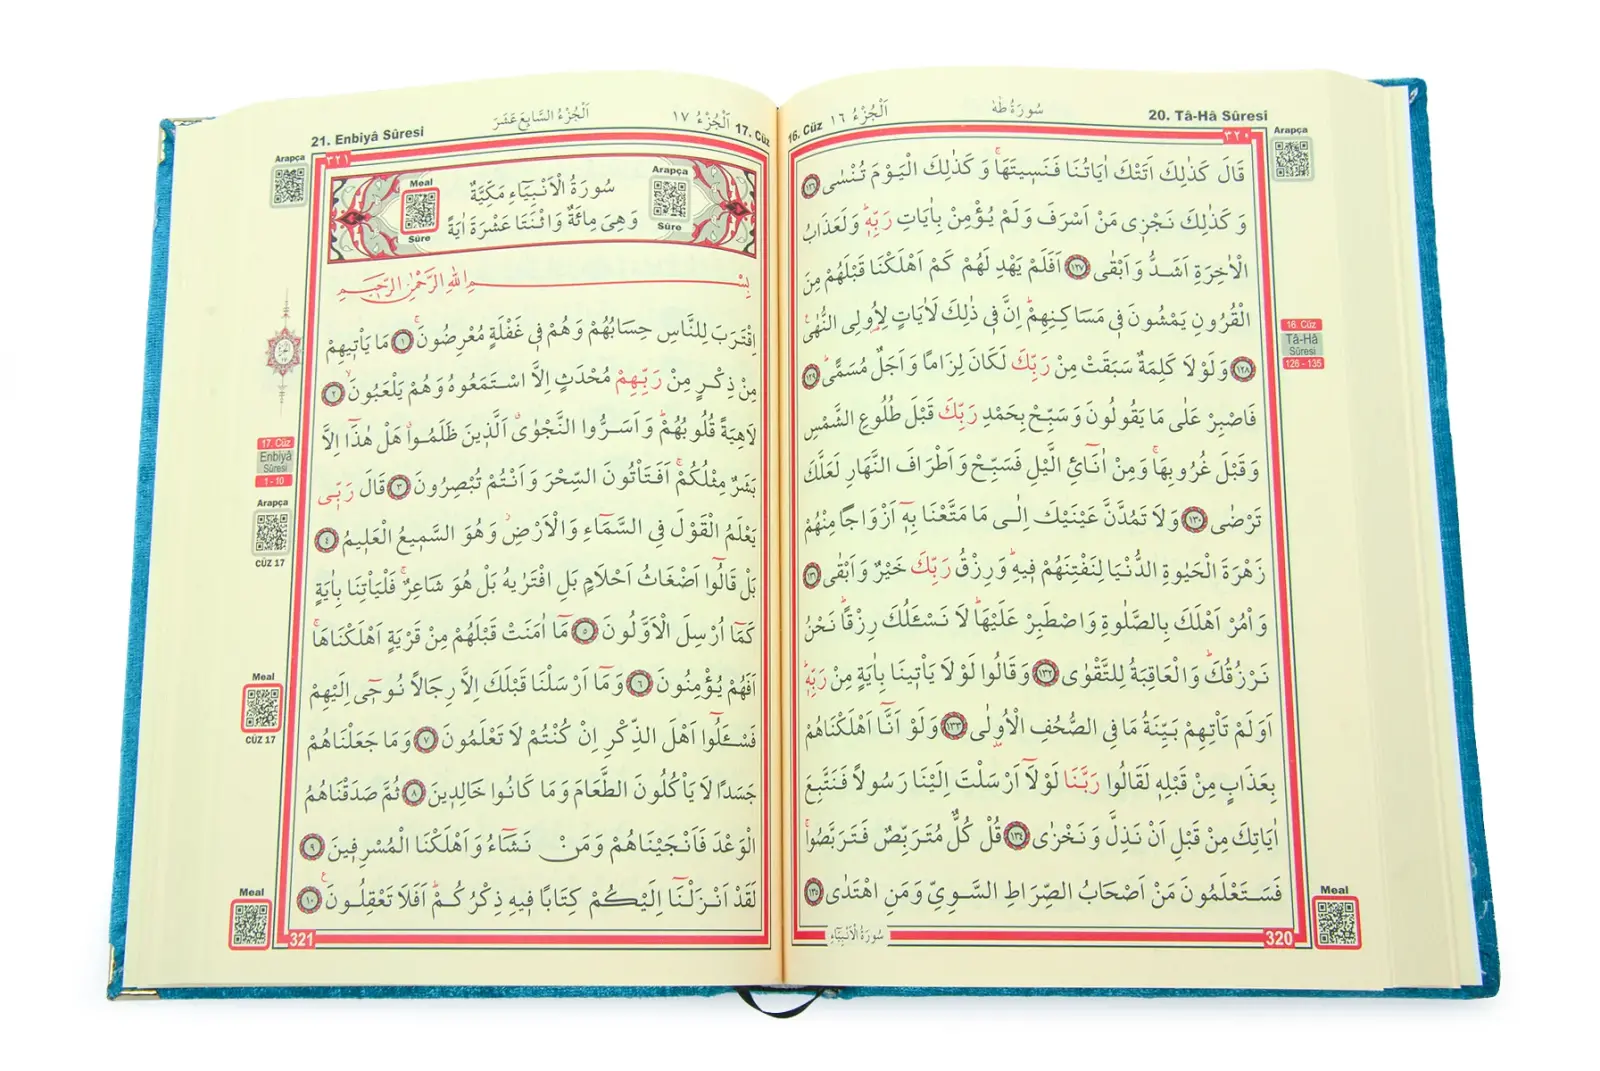 20. Tâ-Hâ Sûresi
سُورَةُ طٰهٰ
اَلْجُزْءُ ١٦
16. Cüz
٣٢٠
Arapça
قَالَ كَذٰلِكَ اَتَتْكَ اٰيَاتُنَا فَنَسٖيتَهَاۚ وَكَذٰلِكَ الْيَوْمَ تُنْسٰى ١٢٦
وَكَذٰلِكَ نَجْزٖى مَنْ اَسْرَفَ وَلَمْ يُؤْمِنْ بِاٰيَاتِ رَبِّهٖؕ وَلَعَذَابُ
الْاٰخِرَةِ اَشَدُّ وَاَبْقٰى ١٢٧ اَفَلَمْ يَهْدِ لَهُمْ كَمْ اَهْلَكْنَا قَبْلَهُمْ مِنَ
الْقُرُونِ يَمْشُونَ فٖى مَسَاكِنِهِمْؕ اِنَّ فٖى ذٰلِكَ لَاٰيَاتٍ لِاُولِى النُّهٰىۚ
١٢٨ وَلَوْلَا كَلِمَةٌ سَبَقَتْ مِنْ رَبِّكَ لَكَانَ لِزَامًا وَاَجَلٌ مُسَمًّىؕ ١٢٩
فَاصْبِرْ عَلٰى مَا يَقُولُونَ وَسَبِّحْ بِحَمْدِ رَبِّكَ قَبْلَ طُلُوعِ الشَّمْسِ
وَقَبْلَ غُرُوبِهَاۚ وَمِنْ اٰنَآئِ الَّيْلِ فَسَبِّحْ وَاَطْرَافَ النَّهَارِ لَعَلَّكَ
تَرْضٰى ١٣٠ وَلَا تَمُدَّنَّ عَيْنَيْكَ اِلٰى مَا مَتَّعْنَا بِهٖٓ اَزْوَاجًا مِنْهُمْ
زَهْرَةَ الْحَيٰوةِ الدُّنْيَا لِنَفْتِنَهُمْ فٖيهِؕ وَرِزْقُ رَبِّكَ خَيْرٌ وَاَبْقٰى ١٣١
وَاْمُرْ اَهْلَكَ بِالصَّلٰوةِ وَاصْطَبِرْ عَلَيْهَاؕ لَا نَسْـَٔلُكَ رِزْقًاؕ نَحْنُ
نَرْزُقُكَؕ وَالْعَاقِبَةُ لِلتَّقْوٰى ١٣٢ وَقَالُوا لَوْلَا يَاْتٖينَا بِاٰيَةٍ مِنْ رَبِّهٖؕ
اَوَلَمْ تَاْتِهِمْ بَيِّنَةُ مَا فِى الصُّحُفِ الْاُولٰى ١٣٣ وَلَوْ اَنَّٓا اَهْلَكْنَاهُمْ
بِعَذَابٍ مِنْ قَبْلِهٖ لَقَالُوا رَبَّنَا لَوْلَٓا اَرْسَلْتَ اِلَيْنَا رَسُولًا فَنَتَّبِعَ
اٰيَاتِكَ مِنْ قَبْلِ اَنْ نَذِلَّ وَنَخْزٰى ١٣٤ قُلْ كُلٌّ مُتَرَبِّصٌ فَتَرَبَّصُواۚ
فَسَتَعْلَمُونَ مَنْ اَصْحَابُ الصِّرَاطِ السَّوِىِّ وَمَنِ اهْتَدٰى ١٣٥
16. Cüz
Tâ-Hâ
Sûresi
126 - 135
Meal
320
سُورَةُ الْاَنْبِيَٓاءِ
17. Cüz
اَلْجُزْءُ ١٧
اَلْجُزْءُ السَّابِعَ عَشَرَ
21. Enbiyâ Sûresi
٣٢١
Arapça
Arapça
Sûre
Meal
Sûre
سُورَةُ الْاَنْبِيَٓاءِ مَكِّيَّةٌ
وَهِىَ مِائَةٌ وَاثْنَتَا عَشْرَةَ اٰيَةً
بِسْمِ اللّٰهِ الرَّحْمٰنِ الرَّحٖيمِ
اِقْتَرَبَ لِلنَّاسِ حِسَابُهُمْ وَهُمْ فٖى غَفْلَةٍ مُعْرِضُونَۚ ١ مَا يَاْتٖيهِمْ
مِنْ ذِكْرٍ مِنْ رَبِّهِمْ مُحْدَثٍ اِلَّا اسْتَمَعُوهُ وَهُمْ يَلْعَبُونَۙ ٢
لَاهِيَةً قُلُوبُهُمْؕ وَاَسَرُّوا النَّجْوٰىۗ اَلَّذٖينَ ظَلَمُواۗ هَلْ هٰذَٓا اِلَّا
بَشَرٌ مِثْلُكُمْۚ اَفَتَاْتُونَ السِّحْرَ وَاَنْتُمْ تُبْصِرُونَ ٣ قَالَ رَبّٖى
يَعْلَمُ الْقَوْلَ فِى السَّمَٓاءِ وَالْاَرْضِۘ وَهُوَ السَّمٖيعُ الْعَلٖيمُ ٤
بَلْ قَالُٓوا اَضْغَاثُ اَحْلَامٍ بَلِ افْتَرٰيهُ بَلْ هُوَ شَاعِرٌۚ فَلْيَاْتِنَا بِاٰيَةٍ
كَمَٓا اُرْسِلَ الْاَوَّلُونَ ٥ مَٓا اٰمَنَتْ قَبْلَهُمْ مِنْ قَرْيَةٍ اَهْلَكْنَاهَاۚ
اَفَهُمْ يُؤْمِنُونَ ٦ وَمَٓا اَرْسَلْنَا قَبْلَكَ اِلَّا رِجَالًا نُوحٖٓى اِلَيْهِمْ
فَسْـَٔلُٓوا اَهْلَ الذِّكْرِ اِنْ كُنْتُمْ لَا تَعْلَمُونَ ٧ وَمَا جَعَلْنَاهُمْ
جَسَدًا لَا يَاْكُلُونَ الطَّعَامَ وَمَا كَانُوا خَالِدٖينَ ٨ ثُمَّ صَدَقْنَاهُمُ
الْوَعْدَ فَاَنْجَيْنَاهُمْ وَمَنْ نَشَٓاءُ وَاَهْلَكْنَا الْمُسْرِفٖينَ ٩
لَقَدْ اَنْزَلْنَٓا اِلَيْكُمْ كِتَابًا فٖيهِ ذِكْرُكُمْؕ اَفَلَا تَعْقِلُونَۚ ١٠
17. Cüz
Enbiyâ
Sûresi
1 - 10
Arapça
CÜZ 17
Meal
CÜZ 17
Meal
321